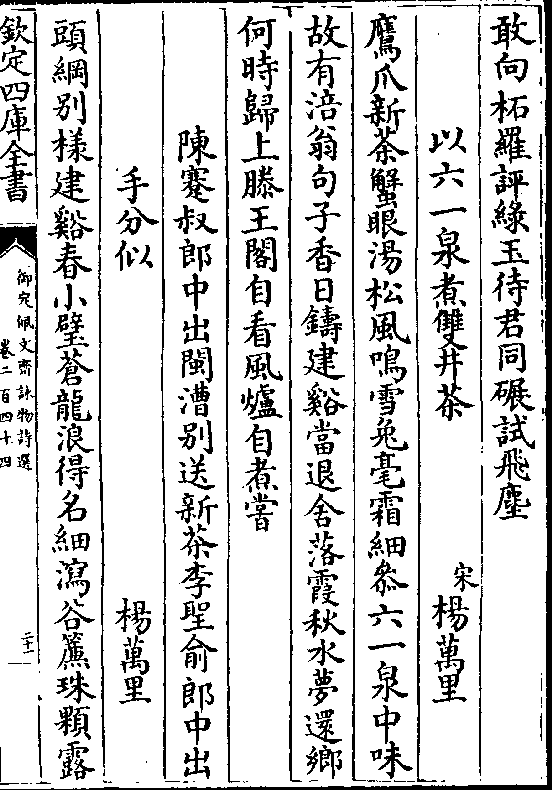 敢向柘羅評綠玉待君同碾試飛塵
以六一泉煮雙井茶
宋楊萬里
鷹爪新茶蟹眼湯松風鳴雪兔毫霜細叅六一泉中味
故有涪翁句子香日鑄建谿當退舍落霞秋水夢還鄉
何時歸上滕王閣自看風爐自煮嘗
陳蹇叔郎中出閩漕別送新茶李聖俞郎中出
手分似
楊萬里
頭綱別樣建谿春小璧蒼龍浪得名細瀉谷簾珠顆露
欽定四庫全書
御定佩文齋詠物詩選
卷二百四十四
二十一